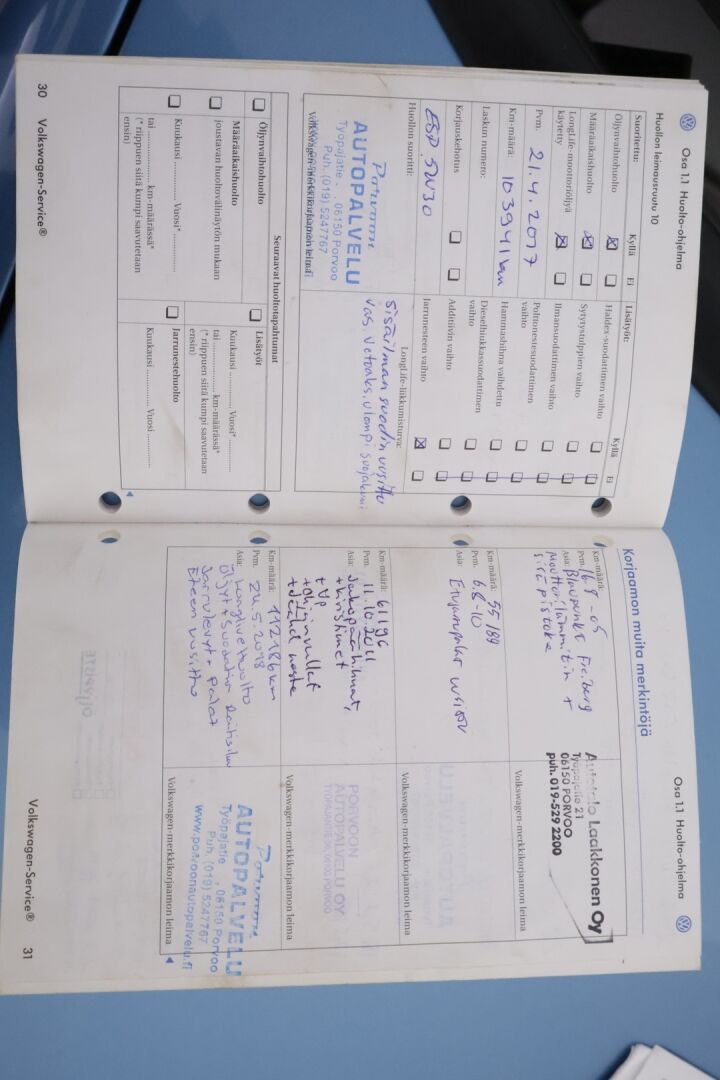 Osa 1.1 Huolto-ohjelma
Huollon leimausruutu 10
Suoritettu:
Kyllä
Ei
Öljynvaihtohuolto
Määräaikaishuolto
LongLife-moottoriöljyä
käytetty
Pvm. 21.4.2017
Km-määrä: 103941km
Laskun numero:
Korjauskehotus
ESP. 5W30
Huollon suoritti:
Porvoon
AUTOPALVELU
Työpajatie . 06150 Porvoo
Puh. (019) 5247767
Volkswagen-merkkikorjaamon leima
Lisätyöt:
Kyllä
Ei
Haldex-suodattimen vaihto
Sytytystulppien vaihto
Ilmansuodattimen vaihto
Polttonestesuodattimen
vaihto
Hammashihna vaihdettu
Dieselhiukkassuodattimen
vaihto
Additiivin vaihto
Jarrunesteen vaihto
LongLife-liikkumisturva:
Sisäilman suodin uusittu
vas. vetoaks. ulompi suojakumi
Seuraavat huoltotapahtumat
Öljynvaihtohuolto
Määräaikaishuolto
joustavan huoltovälinäytön mukaan
Kuukausi ............... Vuosi* ...............
tai ............... km-määrässä*
(* riippuen siitä kumpi saavutetaan
ensin)
Lisätyöt
Kuukausi ............... Vuosi* ...............
tai ............... km-määrässä*
(* riippuen siitä kumpi saavutetaan
ensin)
Jarrunestehuolto
Kuukausi ............... Vuosi ...............
30 Volkswagen-Service®
Osa 1.1 Huolto-ohjelma
Korjaamon muita merkintöjä
Km-määrä:
Pvm. 16.8-05
Asia: Blaupunkt Freiberg
moottorilämmitin +
sisäpistoke
Autotalo Laakkonen Oy
Työpajatie 21
06150 PORVOO
puh. 019-529 2200
Volkswagen-merkkikorjaamon leima
Km-määrä: 55189
Pvm. 6.8-10
Asia: Etujarrupalat uusittu
Volkswagen-merkkikorjaamon leima
Km-määrä: 61196
Pvm. 11.10.2011
Asia: Jakopään hihnat,
+kiristimet
+Vp
+ohjinrullat
+jäähd neste
PORVOON
AUTOPALVELU OY
Volkswagen-merkkikorjaamon leima
Km-määrä: 112186km
Pvm. 24.5.2018
Asia:
Öljyt + Suodatin Raitisilm
Jarrulevyt + palat
Eteen uusittu
Porvoon
AUTOPALVELU
Työpajatie , 06150 Porvoo
Puh. (019) 5247767
www.porvoonautopalvelu.fi
Volkswagen-merkkikorjaamon leima
Volkswagen-Service® 31